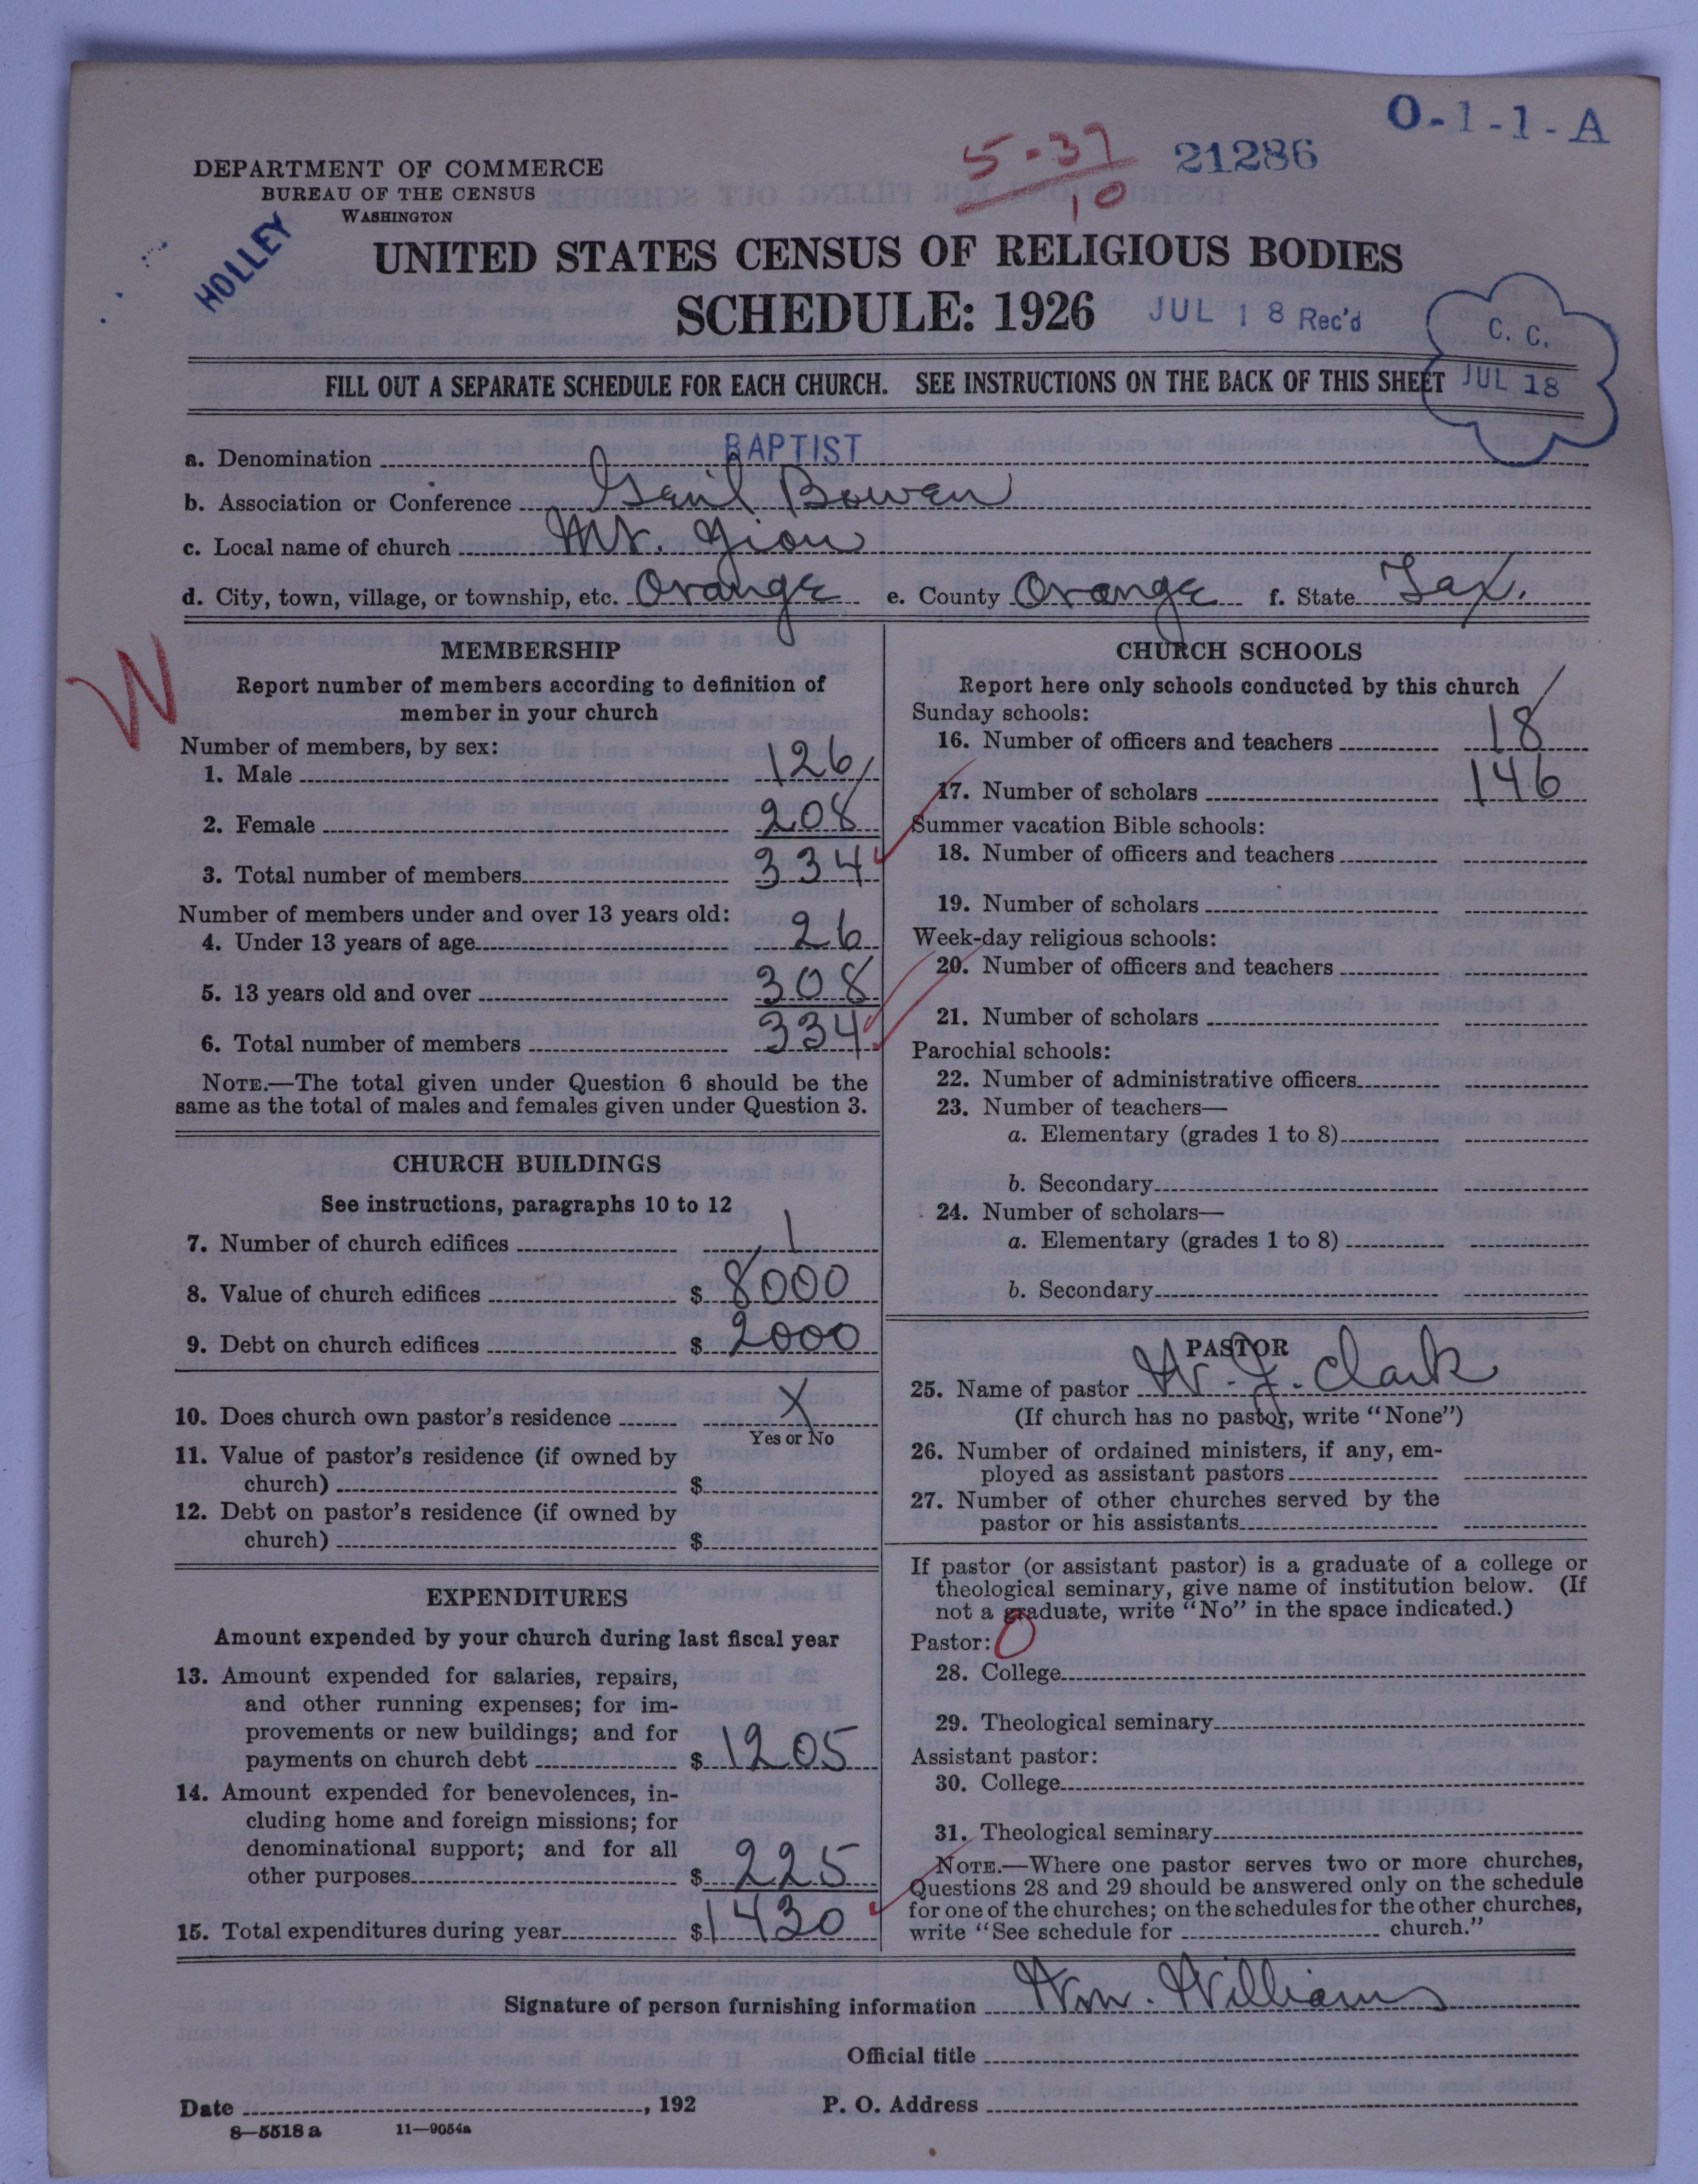 O-1-1-A
5-37
10
21286
DEPARTMENT OF COMMERCE
BUREAU OF THE CENSUS
WASHINGTON
HOLLEY
UNITED STATES CENSUS OF RELIGIOUS BODIES
SCHEDULE: 1926 JUL 18 Rec'd
C. C.
JUL 18
FILL OUT A SEPARATE SCHEDULE FOR EACH CHURCH. SEE INSTRUCTIONS ON THE BACK OF THIS SHEET
a. Denomination BAPTIST
b. Association or Conference Bowen
c. Local name of church Mt. Zion
d. City, town, village, or township, etc. Orange e. County Orange f. State Tex.
W
MEMBERSHIP
Report number of members according to definition of
member in your church
Number of members, by sex:
1. Male 126
2. Female 208
3. Total number of members 334
Number of members under and over 13 years old:
4. Under 13 years of age 26
5. 13 years old and over 308
6. Total number of members 334
NOTE.—The total given under Question 6 should be the
same as the total of males and females given under Question 3.
CHURCH BUILDINGS
See instructions, paragraphs 10 to 12
7. Number of church edifices 1
8. Value of church edifices $ 8000
9. Debt on church edifices $ 2000
10. Does church own pastor's residence X
Yes or No
11. Value of pastor's residence (if owned by
church) $
12. Debt on pastor's residence (if owned by
church) $
EXPENDITURES
Amount expended by your church during last fiscal year
13. Amount expended for salaries, repairs,
and other running expenses; for im-
provements or new buildings; and for
payments on church debt $ 1205
14. Amount expended for benevolences, in-
cluding home and foreign missions; for
denominational support; and for all
other purposes $ 225
15. Total expenditures during year $ 1430
CHURCH SCHOOLS
Report here only schools conducted by this church
Sunday schools:
16. Number of officers and teachers 18
17. Number of scholars 146
Summer vacation Bible schools:
18. Number of officers and teachers
19. Number of scholars
Week-day religious schools:
20. Number of officers and teachers
21. Number of scholars
Parochial schools:
22. Number of administrative officers
23. Number of teachers—
a. Elementary (grades 1 to 8)
b. Secondary
24. Number of scholars—
a. Elementary (grades 1 to 8)
b. Secondary
PASTOR
25. Name of pastor W. J. Clark
(If church has no pastor, write "None")
26. Number of ordained ministers, if any, em-
ployed as assistant pastors
27. Number of other churches served by the
pastor or his assistants
If pastor (or assistant pastor) is a graduate of a college or
theological seminary, give name of institution below. (If
not a graduate, write "No" in the space indicated.)
Pastor: 0
28. College
29. Theological seminary
Assistant pastor:
30. College
31. Theological seminary
NOTE.—Where one pastor serves two or more churches,
Questions 28 and 29 should be answered only on the schedule
for one of the churches; on the schedules for the other churches,
write "See schedule for church."
Signature of person furnishing information Wm. Williams
Official title
Date , 192 P. O. Address
8—5518 a 11—9054a